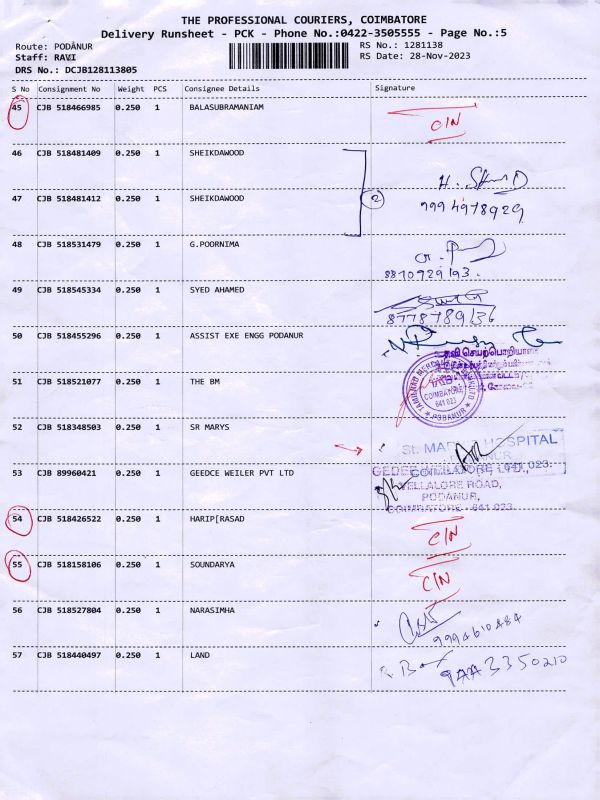 THE PROFESSIONAL COURIERS, COIMBATORE
Delivery Runsheet - PCK - Phone No.:0422-3505555 - Page No.:5
Route: PODANUR
RS No.: 1281138
Staff: RAVI
RS Date: 28-Nov-2023
DRS No.: DCJB128113805
S No Consignment No Weight PCS Consignee Details Signature
45 CJB 518466985 0.250 1 BALASUBRAMANIAM
46 CJB 518481409 0.250 1 SHEIKDAWOOD
47 CJB 518481412 0.250 1 SHEIKDAWOOD 2
9994978929
48 CJB 518531479 0.250 1 G.POORNIMA
8870929193.
49 CJB 518545334 0.250 1 SYED AHAMED
8778789136
50 CJB 518455296 0.250 1 ASSIST EXE ENGG PODANUR
51 CJB 518521077 0.250 1 THE BM
COIMBATORE
641 023
PODANUR
52 CJB 518348503 0.250 1 SR MARYS
HOSPITAL
53 CJB 89960421 0.250 1 GEEDCE WEILER PVT LTD
VELLALORE ROAD,
PODANUR,
COIMBATORE - 641 023
54 CJB 518426522 0.250 1 HARIP[RASAD C/N
55 CJB 518158106 0.250 1 SOUNDARYA C/N
56 CJB 518527804 0.250 1 NARASIMHA
9994610484
57 CJB 518440497 0.250 1 LAND